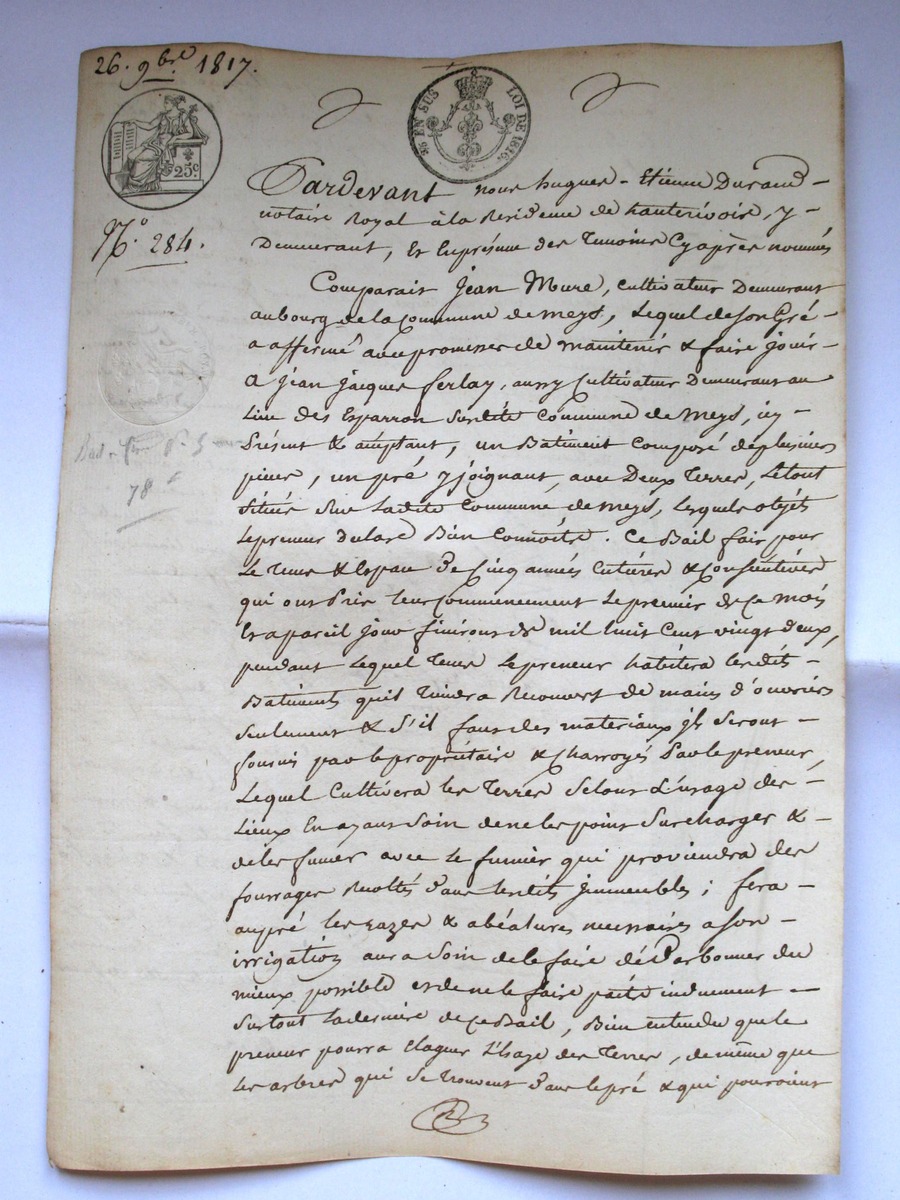 26. 9bre 1817.
25c
EN SUS LOI DE 1816.
No. 284.
Pardevant nous hugues-Etienne Durand
notaire Royal à la Residence de hauterivoire, y
Demeurant, Et En présence des Temoins Cy après nommés
Comparait Jean Mure, cultivateur Demeurant
au bourg de la Commune de meys, Lequel de son Gré
a affermé avec promesse de maintenir & faire jouir
a Jean Jacques ferlay, aussy Cultivateur Demeurant au
Lieu des Esparron Surdite Commune de Meys, icy
Présent & acceptant, un Batiment Composé de plusieurs
pieces, un pré y joignant, avec Deux Terres, Le tout
Situés Sur Ladite Commune de meys, Lesquels objets
Le preneur Declare Bien Connoître. Ce Bail fait pour
Le Tems & Espace De Cinq années Entières & Consécutives
qui ont Pris leur Commencement Le premier de Ce mois
Et a pareil jour finiront de mil huit Cent vingt deux,
pendant Lequel Tems Le preneur habitera lesdits
Batiments qu'il Tiendra Recouvert de mains d'ouvriers
Seulement & S'il faut des materiaux ils Seront
fournis par le propriétaire & Charroyés Par le preneur,
Lequel Cultivera les Terres Selont L'usage des
Lieux En ayant Soin de ne les point Surcharger &
de les fumer avec Le fumier qui proviendra des
fourrages Recoltés Dans lesdits immeubles; fera
au pré les razes & abéatures necessaires a son
irrigation aura Soin de le faire déCharbonner du
mieux possible et de ne le faire paitre induement
Surtout La derniere de Ce Bail, Bien entendu que le
preneur pourra Elaguer L'hage des Terres, de même que
Les arbres qui Se trouvent Dans le pré & qui pourront
78 f